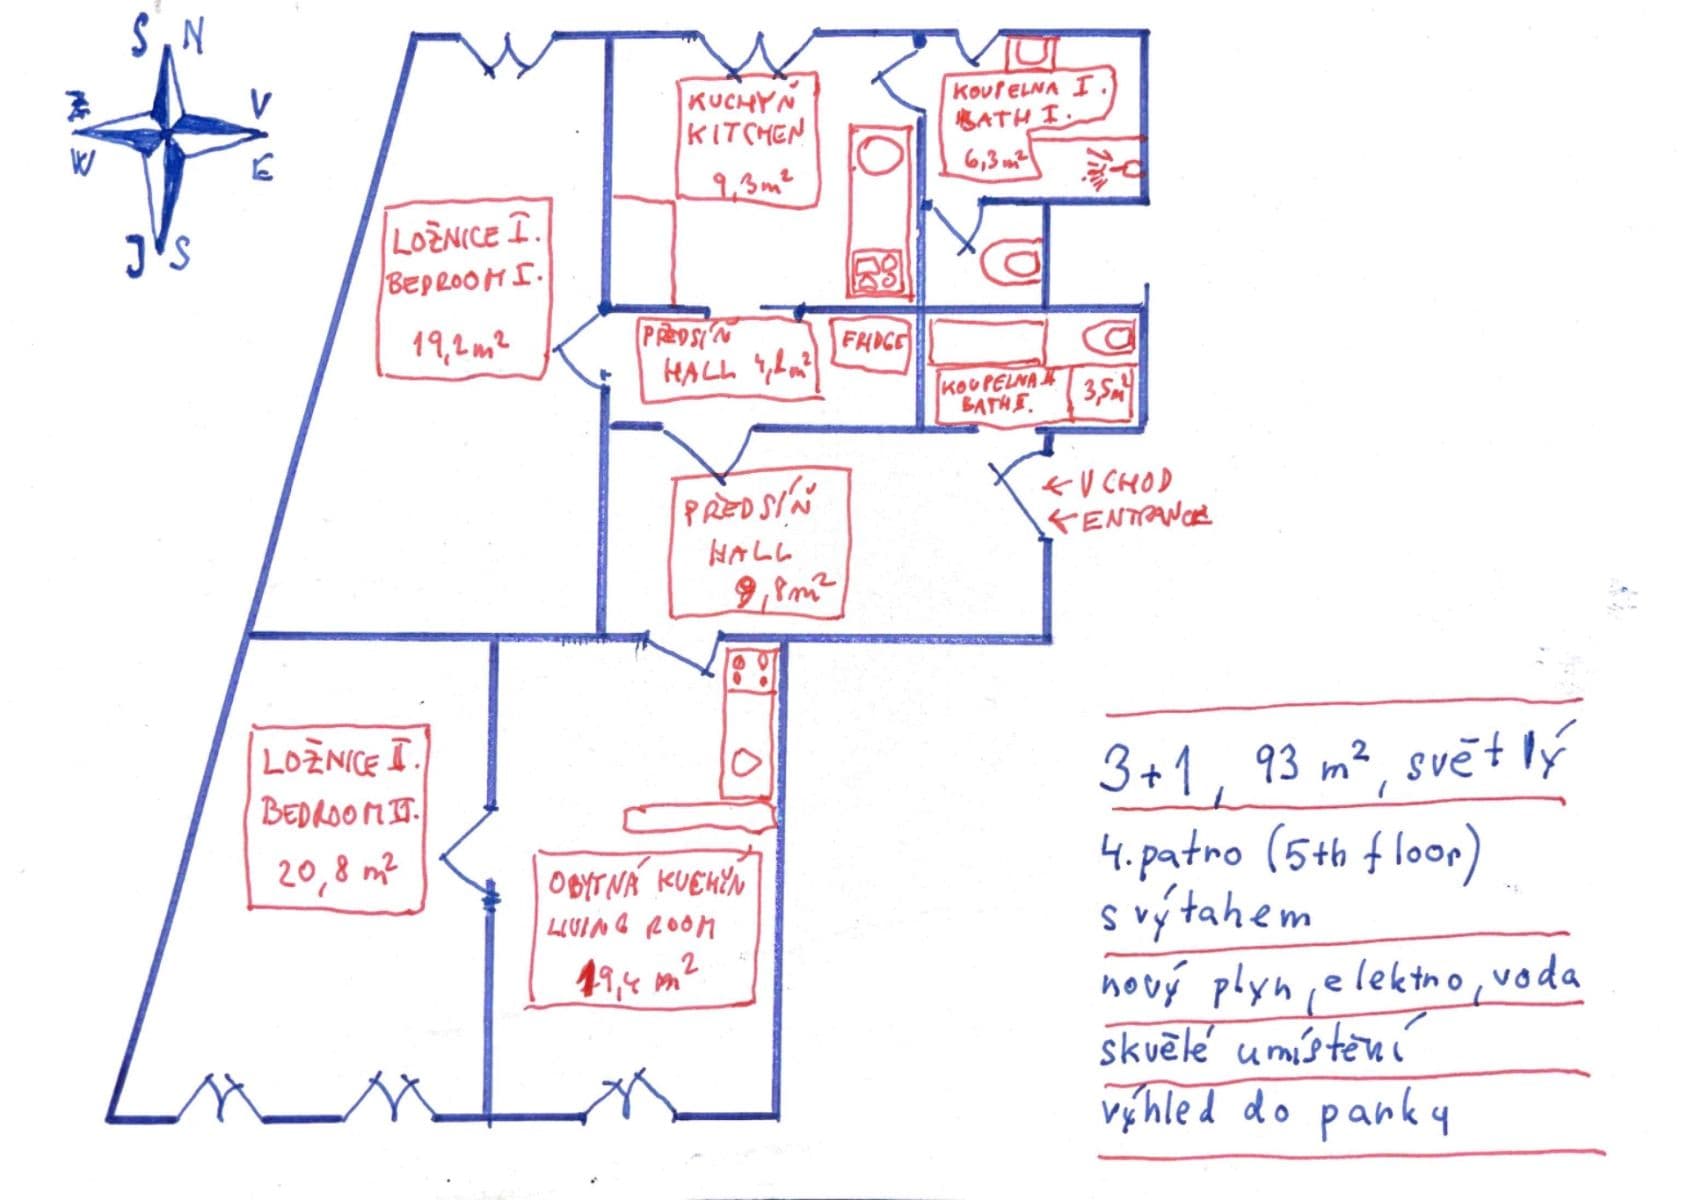 S N
Z V
W E
J S
KUCHYŇ
KITCHEN
9,3m²
KOUPELNA I.
BATH I.
6,3m²
LOŽNICE I.
BEDROOM I.
19,2m²
PŘEDSÍŇ
HALL 4,2m²
FRIDGE
KOUPELNA II
BATH II.
3,5m²
← VCHOD
← ENTRANCE
PŘEDSÍŇ
HALL
9,8m²
LOŽNICE II.
BEDROOM II.
20,8 m²
OBYTNÁ KUCHYŇ
LIVING ROOM
19,4 m²
3+1, 93 m², světlý
4. patro (5th floor)
s výtahem
nový plyn, elektro, voda
skvělé umístění
výhled do parku